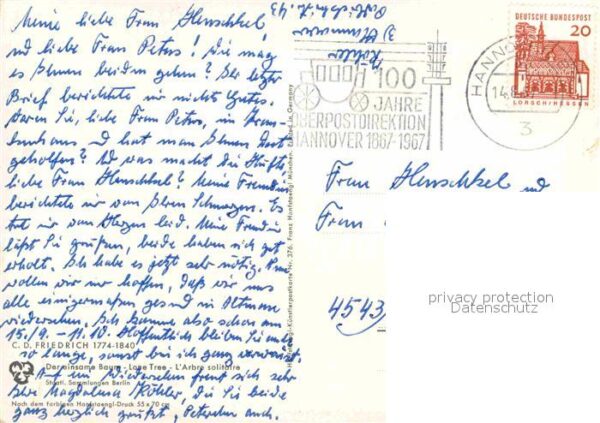 Meine liebe Frau Henschkel!
und liebe Frau Peters! Wie mag
es Ihnen beiden gehen? Der letzte
Brief berichtete nichts Gutes.
Waren Sie, liebe Frau Peters, im Kran-
kenhaus, und hat man Ihnen dort
geholfen? Und was macht die Hüfte,
liebe Frau Henschkel? Meine Freundin
berichtete mir von Ihren Schmerzen. Es
tut mir von Herzen leid. Meine Freundin
läßt Sie grüßen, beide haben sich gut
erholt. Ich habe es jetzt sehr nötig.
wollen wir nur hoffen, daß wir uns
alle einigermaßen gesund in
wiedersehen. Ich komme also schon am
15./9. - 11.10. Hoffentlich bleiben Sie auch
so lange, sonst bin ich ganz verwaist.
C. D. FRIEDRICH 1774-1840
Der einsame Baum - Lone Tree - L'Arbre solitaire
Staatl. Sammlungen Berlin
Auf ein Wiedersehen freut sich sehr
Ihre Magdalena Köhler, die Sie beide
Nach dem farbigen Hanfstaengl-Druck 55 x 70 cm
ganz herzlich grüßt, Peterchen auch.
Hanfstaengl-Künstlerpostkarte Nr. 376. Franz Hanfstaengl München Printed in Germany
Köhler
3) Hannover
43
100
JAHRE
OBERPOSTDIREKTION
HANNOVER 1867-1967
HANNOVER
14.8.
3
DEUTSCHE BUNDESPOST
20
LORSCH/HESSEN
Frau Henschkel und
Frau
4543
privacy protection
Datenschutz